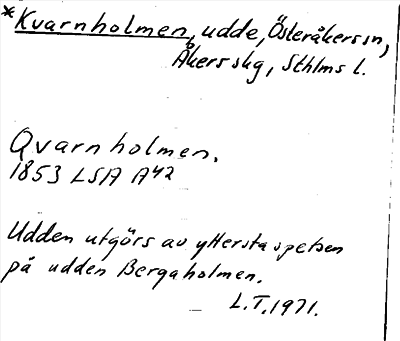 *Kvarnholmen, udde, Österåkers sn,
Åkers skg, Sthlms l.
Qvarnholmen.
1853 LSA A42
Udden utgörs av yttersta spetsen
på udden Bergaholmen.
L.T. 1971.